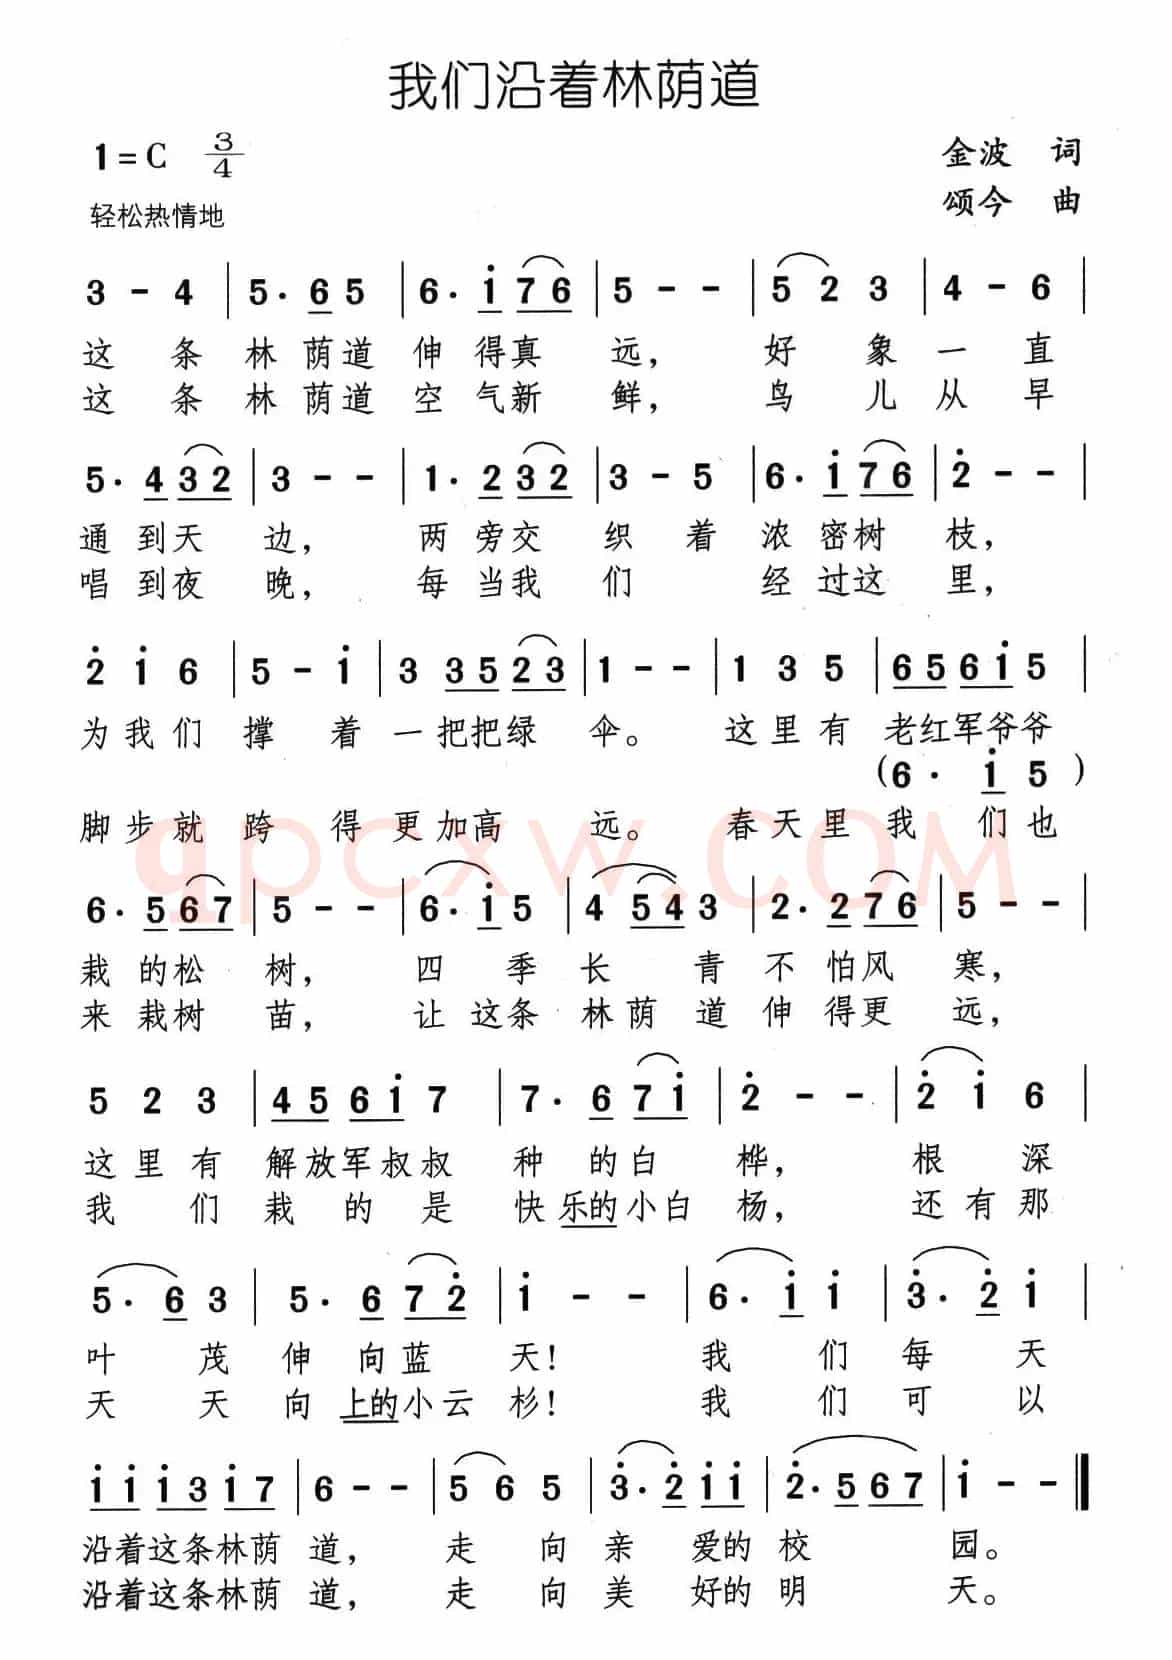 我们沿着林荫道
1=C 3/4
金波 词
轻松热情地
颂今 曲
3 - 4 | 5· 6 5 | 6· i 7 6 | 5 - - | 5 2 3 | 4 - 6 |
这 条 林 荫 道 伸 得真 远， 好 象 一 直
这 条 林 荫 道 空 气新 鲜， 鸟 儿 从 早
5· 4 3 2 | 3 - - | 1· 2 3 2 | 3 - 5 | 6· i 7 6 | 2̇ - - |
通 到天 边， 两 旁交 织 着 浓 密树 枝，
唱 到夜 晚， 每 当我 们 经 过这 里，
2̇ i 6 | 5 - i | 3 3 5 2 3 | 1 - - | 1 3 5 | 6 5 6 i 5 |
为 我 们 撑 着 一 把把绿 伞。 这 里 有 老红军爷爷
(6· i 5)
脚 步 就 跨 得 更加高 远。 春 天 里 我 们 也
qpcxw.COM
6· 5 6 7 | 5 - - | 6· i 5 | 4 5 4 3 | 2· 2 7 6 | 5 - - |
栽 的松 树， 四 季 长 青 不 怕风 寒，
来 栽树 苗， 让 这条 林荫 道 伸 得更 远，
5 2 3 | 4 5 6 i 7 | 7· 6 7 i | 2̇ - - | 2̇ i 6 |
这 里 有 解放军叔叔 种 的白 桦， 根 深
我 们 栽 的 是 快 乐的小白 杨， 还 有 那
5· 6 3 | 5· 6 7 2̇ | i - - | 6· i i | 3̇· 2̇ i |
叶 茂 伸 向 蓝 天！ 我 们 每 天
天 天 向 上的小云 杉！ 我 们 可 以
i i i 3 i 7 | 6 - - | 5 6 5 | 3̇· 2̇ i i | 2̇· 5 6 7 | i - - ‖
沿着这条林荫 道， 走 向 亲 爱的 校 园。
沿着这条林荫 道， 走 向 美 好的 明 天。